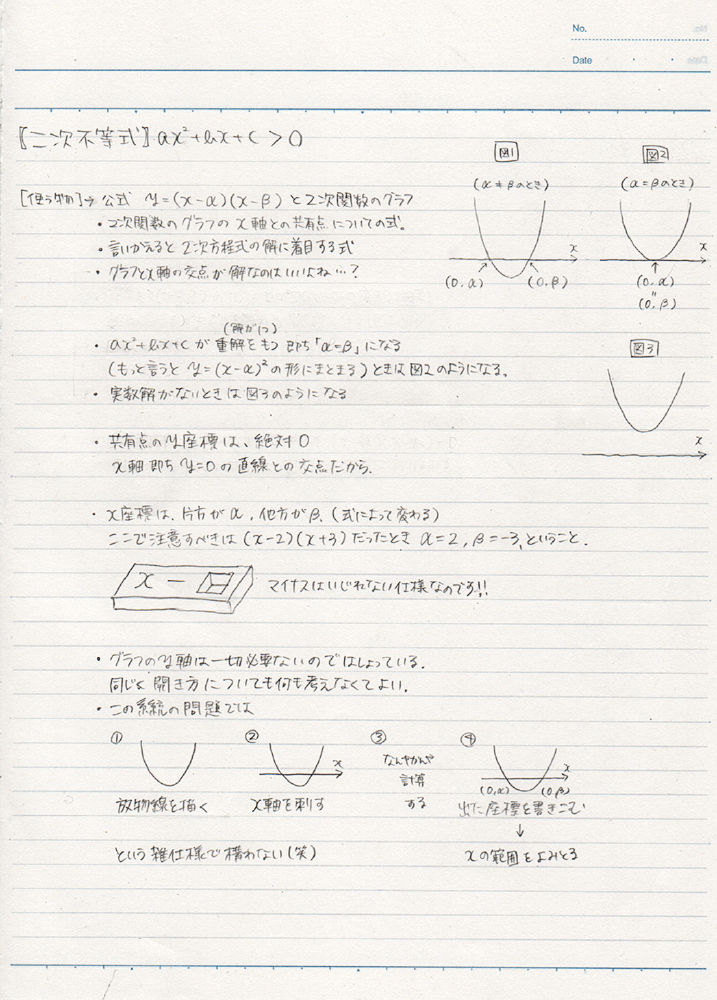 No.
Date
〖二次不等式〗ax²+bx+c>0
[使う物]→ 公式 y=(x-α)(x-β) と2次関数のグラフ
・2次関数のグラフの x軸との共有点についての式。
・言いかえると 2次方程式の解に着目する式
・グラフとx軸の交点が解なのはいいよね…?
図1
(α≠βのとき)
x
(0,α) (0,β)
図2
(α=βのとき)
x
(0,α)
〃
(0,β)
(解が1つ)
・ax²+bx+cが重解をもつ 即ち「α=β」になる
(もっと言うと y=(x-α)²の形にまとまる)ときは図2のようになる。
・実数解がないときは図3のようになる
図3
x
・共有点のy座標は、絶対0
x軸 即ち y=0 の直線との交点だから。
・x座標は、片方がα, 他方がβ. (式によって変わる)
ここで注意すべきは (x-2)(x+3) だったとき α=2, β=-3, ということ.
x − □ マイナスはいじれない仕様なのです!!
・グラフのy軸は一切必要ないのではしょっている.
同じく 開き方についても何も考えなくてよい.
・この系統の問題では
① ② ③ ④
x
なんやかんや
計算
する
x
(0,α) (0,β)
放物線を描く x軸を刺す 出た座標を書きこむ
↓
という雑仕様で構わない(笑) xの範囲をよみとる